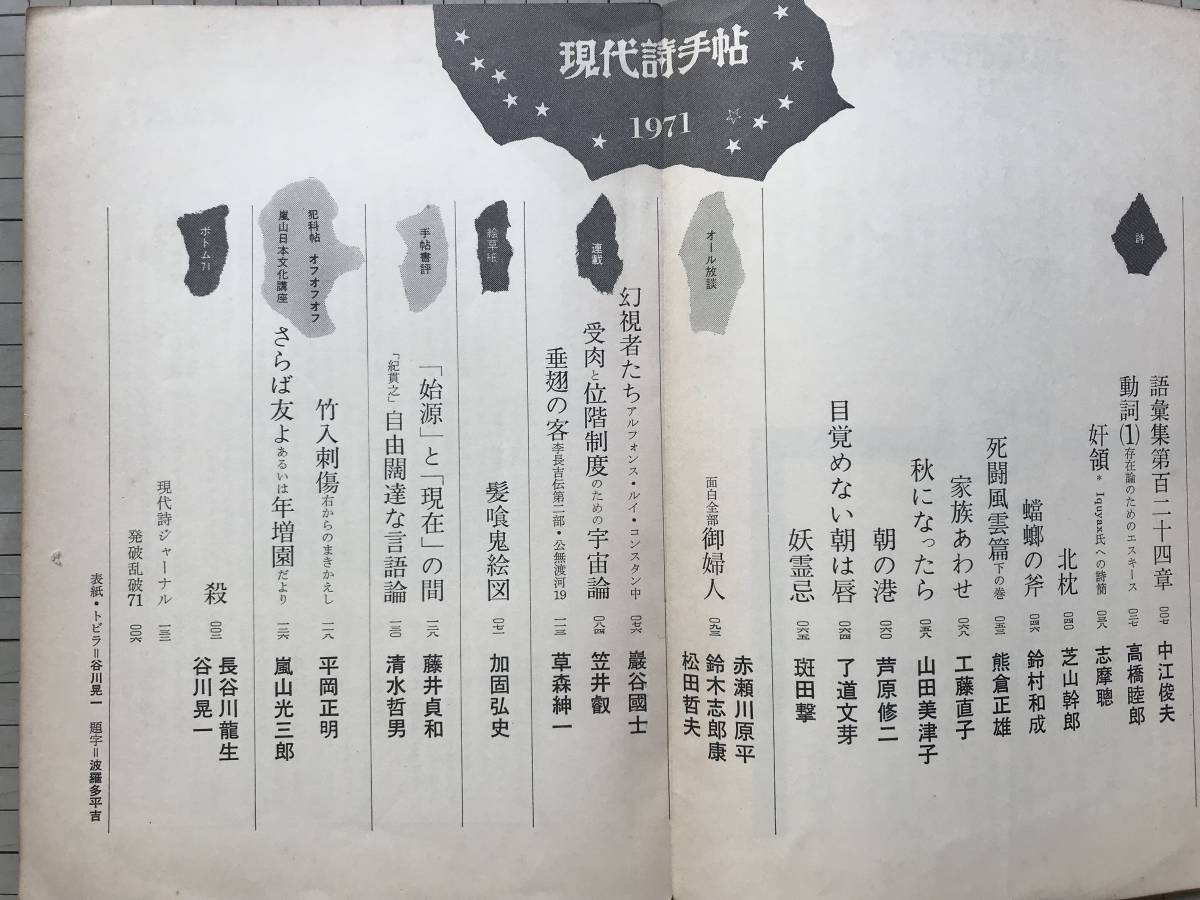 現代詩手帖
1971
詩
語彙集第百二十四章 〇〇七 中江俊夫
動詞(1) 存在論のためのエスキース 〇二七 高橋睦郎
奸領* Iquyax氏への詩簡 〇三八 志摩聰
北枕 〇四〇 芝山幹郎
蟷螂の斧 〇四六 鈴村和成
死闘風雲篇 下の巻 〇五三 熊倉正雄
家族あわせ 〇六八 工藤直子
秋になったら 〇五八 山田美津子
朝の港 〇六〇 芦原修二
目覚めない朝は唇 〇六四 了道文芽
妖霊忌 〇六五 斑田撃
オール放談
面白全部 御婦人 〇九三 赤瀬川原平
鈴木志郎康
松田哲夫
連載
幻視者たち アルフォンス・ルイ・コンスタン 中 〇七六 巖谷國士
受肉と位階制度のための宇宙論 〇八四 笠井叡
垂翅の客 李長吉伝第二部・公無渡河19 一一三 草森紳一
絵草紙
髪喰鬼絵図 〇七一 加固弘史
手帖書評
「始源」と「現在」の間 一二八 藤井貞和
「紀貫之」自由闊達な言語論 一三〇 清水哲男
犯科帖 オフオフオフ
竹入刺傷 右からのまきかえし 一一八 平岡正明
嵐山日本文化講座
さらば友よ あるいは 年増園だより 一二六 嵐山光三郎
ボトム71
殺 〇〇三 長谷川龍生
谷川晃一
現代詩ジャーナル 一三二
発破乱破71 〇〇六
表紙・トビラ=谷川晃一 題字=波羅多平吉